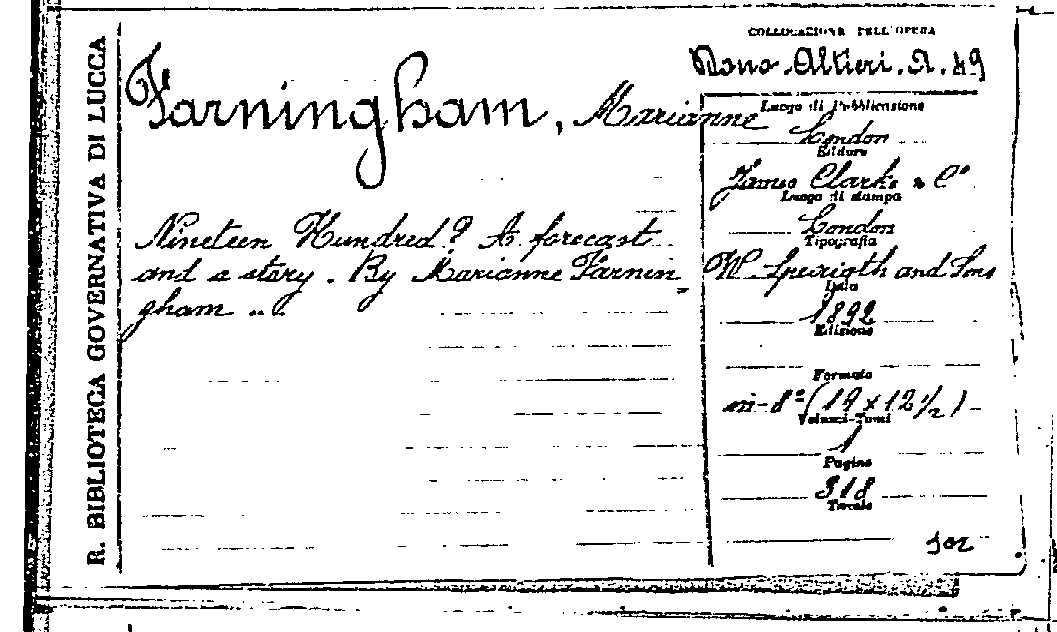 R. BIBLIOTECA GOVERNATIVA DI LUCCA
COLLOCAZIONE DELL'OPERA
Dono Altieri. A. 49
Farningham, Marianne
Nineteen Hundred? A forecast
and a story. By Marianne Farnin-
gham ...
Luogo di Pubblicazione
London
Editore
James Clarke & Cº
Luogo di stampa
London
Tipografia
W. Speaigth and Sons
Data
1892
Edizione
Formato
in-8º (19 x 12 1/2)
Volumi-Tomi
1
Pagine
318
Tavole